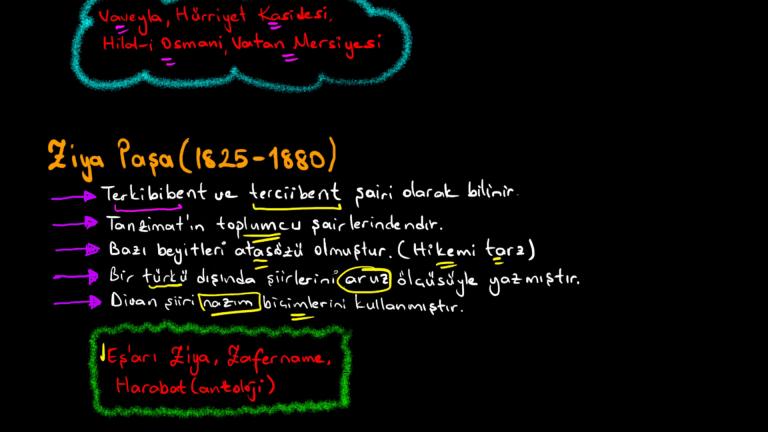 Vaveyla, Hürriyet Kasidesi,
Hilâl-i Osmani, Vatan Mersiyesi
Ziya Paşa (1825-1880)
Terkibibent ve terciibent şairi olarak bilinir.
Tanzimat'ın toplumcu şairlerindendir.
Bazı beyitleri atasözü olmuştur. (Hikemi tarz)
Bir türkü dışında şiirlerini aruz ölçüsüyle yazmıştır.
Divan şiiri nazım biçimlerini kullanmıştır.
Eş'arı Ziya, Zafername,
Harabat (antoloji)